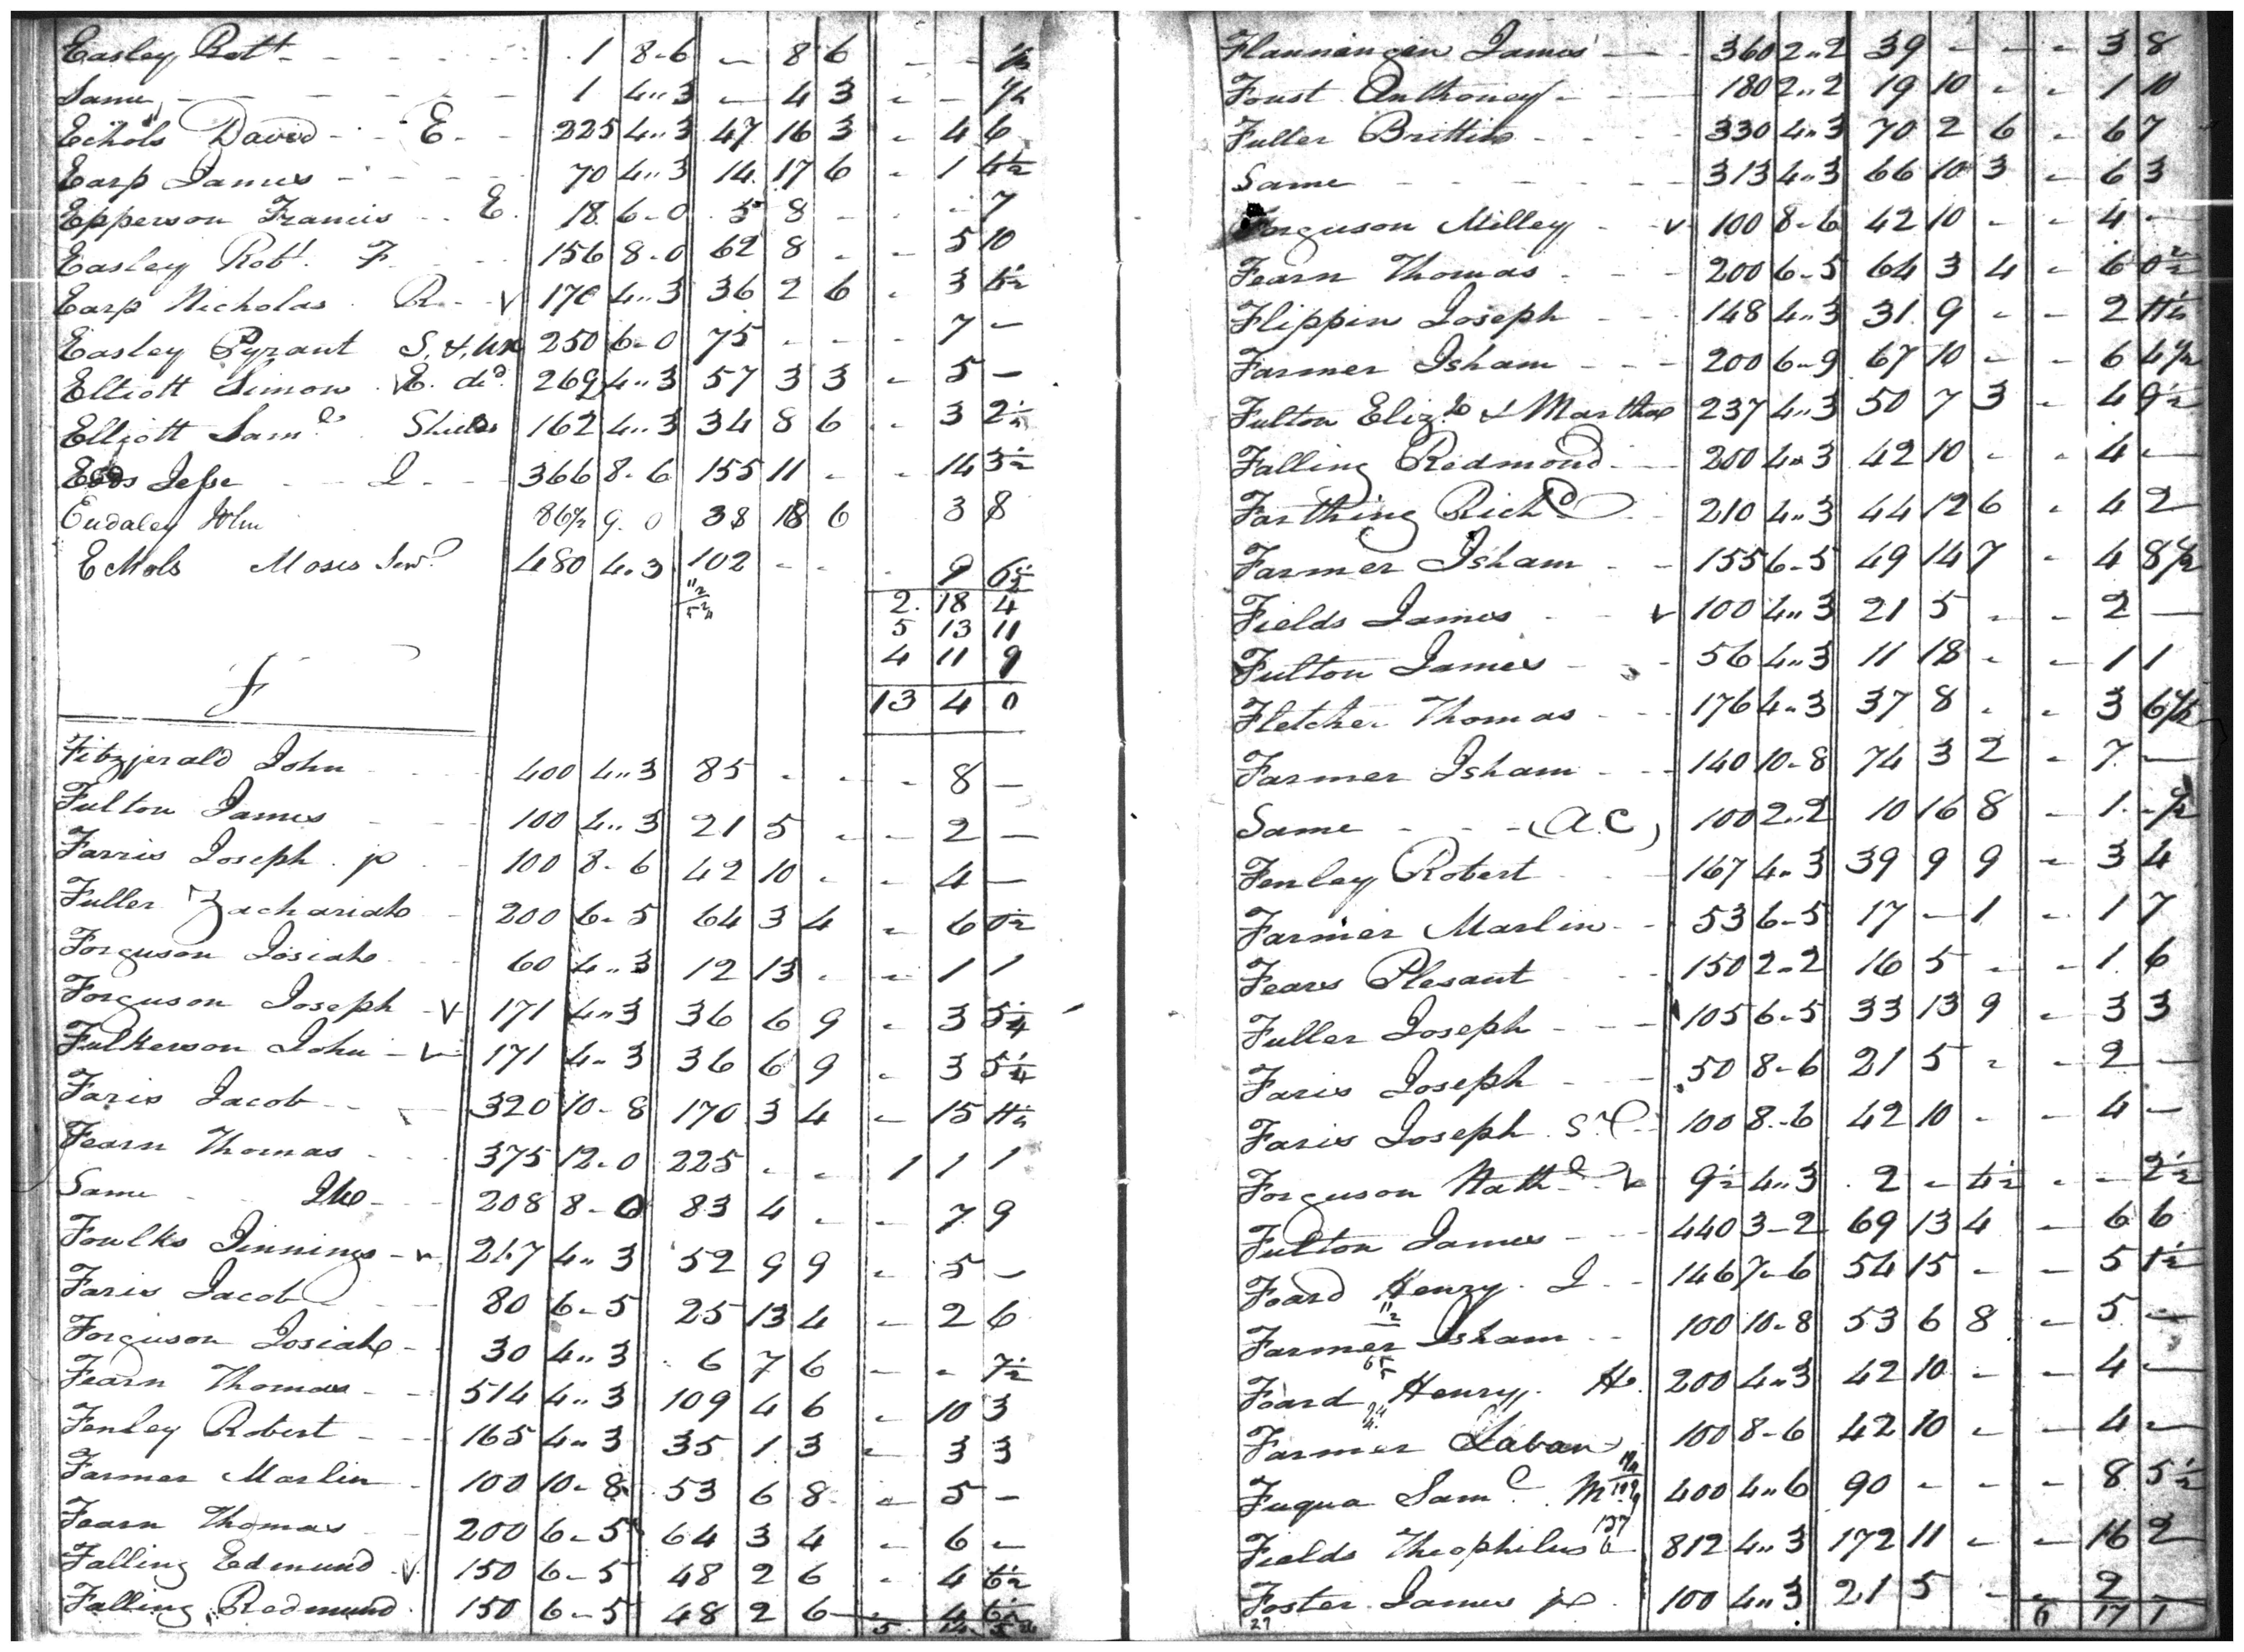 Easley Robt - 1 8-6 - 8 6 - - ½
Same - 1 4"3 - 4 3 - - ½
Echols David - E - 225 4"3 47 16 3 - 4 6
Earp James - 70 4"3 14 17 6 - 1 4½
Epperson Francis - E. 18 6-0 5 8 - - - 7
Easley Robt. F - 156 8-0 62 8 - - 5 10
Earp Nicholas R - v 170 4"3 36 2 6 - 3 5½
Easley Pyrant S. & Wm 250 6-0 75 - - - 7 -
Elliott Simon E. do 269 4"3 57 3 3 - 5 -
Elliott Saml 162 4"3 34 8 6 - 3 2½
Eds Jesse - J - 366 8-6 155 11 - - 14 3½
Eudaley John 86½ 9-0 38 18 6 3 8
Echols Moses Senr 480 4"3 102 - - - 9 6½
2 18 4
5 13 11
4 11 9
13 4 0
F
Fitzjerald John 400 4"3 85 - - - 8 -
Fulton James 100 4"3 21 5 - - 2 -
Farris Joseph jr 100 8-6 42 10 - - 4 -
Fuller Zachariah 200 6-5 64 3 4 - 6 0½
Forguson Josiah 60 4"3 12 13 - - 1 1
Forguson Joseph - v 171 4"3 36 6 9 - 3 5¼
Fulkerson John - v 171 4"3 36 6 9 - 3 5¼
Faris Jacob - 320 10-8 170 3 4 - 15 11½
Fearn Thomas - 375 12-0 225 - - 1 1 1
Same - 208 8-0 83 4 - - 7 9
Foulks Jinnings - v 247 4"3 52 9 9 - 5 -
Faris Jacob 80 6-5 25 13 4 - 2 6
Forguson Josiah - 30 4"3 6 7 6 - - 7½
Fearn Thomas - 514 4"3 109 4 6 - 10 3
Fenley Robert - 165 4"3 35 1 3 - 3 3
Farmer Marlin - 100 10-8 53 6 8 - 5 -
Fearn Thomas 200 6-5 64 3 4 - 6 -
Falling Edmund v 150 6-5 48 2 6 - 4 6½
Falling Redmund 150 6-5 48 2 6 - 4 6½
Flanningin James - 360 2"2 39 - - - 3 8
Foust Anthoney - 180 2"2 19 10 - - 1 10
Fuller Brittin - 330 4"3 70 2 6 - 6 7
Same - 313 4"3 66 10 3 - 6 3
Forguson Milley - v 100 8-6 42 10 - - 4 -
Fearn Thomas - 200 6-5 64 3 4 - 6 0½
Flippin Joseph - 148 4"3 31 9 - - 2 11½
Farmer Isham - 200 6-9 67 10 - - 6 4½
Fulton Elizh & Martha 237 4"3 50 7 3 - 4 9½
Falling Redmond - 200 4"3 42 10 - - 4 -
Farthing Richd - 210 4"3 44 12 6 - 4 2
Farmer Isham - 155 6-5 49 14 7 - 4 8½
Fields James - v 100 4"3 21 5 - - 2 -
Fulton James - 56 4"3 11 18 - - 1 1
Fletcher Thomas - 176 4"3 37 8 - - 3 6½
Farmer Isham - 140 10-8 74 3 2 - 7 -
Same - (A.C) 100 2"2 10 16 8 - 1 - ½
Fenley Robert - 167 4"3 39 9 9 - 3 4
Farmer Marlin - 53 6-5 17 - 1 - 1 7
Fears Plesant 150 2"2 16 5 - - 1 6
Fuller Joseph - 105 6-5 33 13 9 - 3 3
Faris Joseph - 50 8-6 21 5 - - 2 -
Faris Joseph Sr - 100 8-6 42 10 - - 4 -
Forguson Nathl v 9½ 4"3 2 - 4½ - - 2½
Fulton James - 440 3-2 69 13 4 - 6 6
Foard Henry J - 146 7-6 54 15 - - 5 1½
Farmer Isham - 100 10-8 53 6 8 - 5 -
Foard Henry H. 200 4"3 42 10 - - 4 -
Farmer Laban 100 8-6 42 10 - - 4 -
Fuqua Saml M 400 4"6 90 - - - 8 5½
Fields Theophilus 812 4"3 172 11 - - 16 2
Foster James jr 100 4"3 21 5 - - 2 -
27 6 17 1